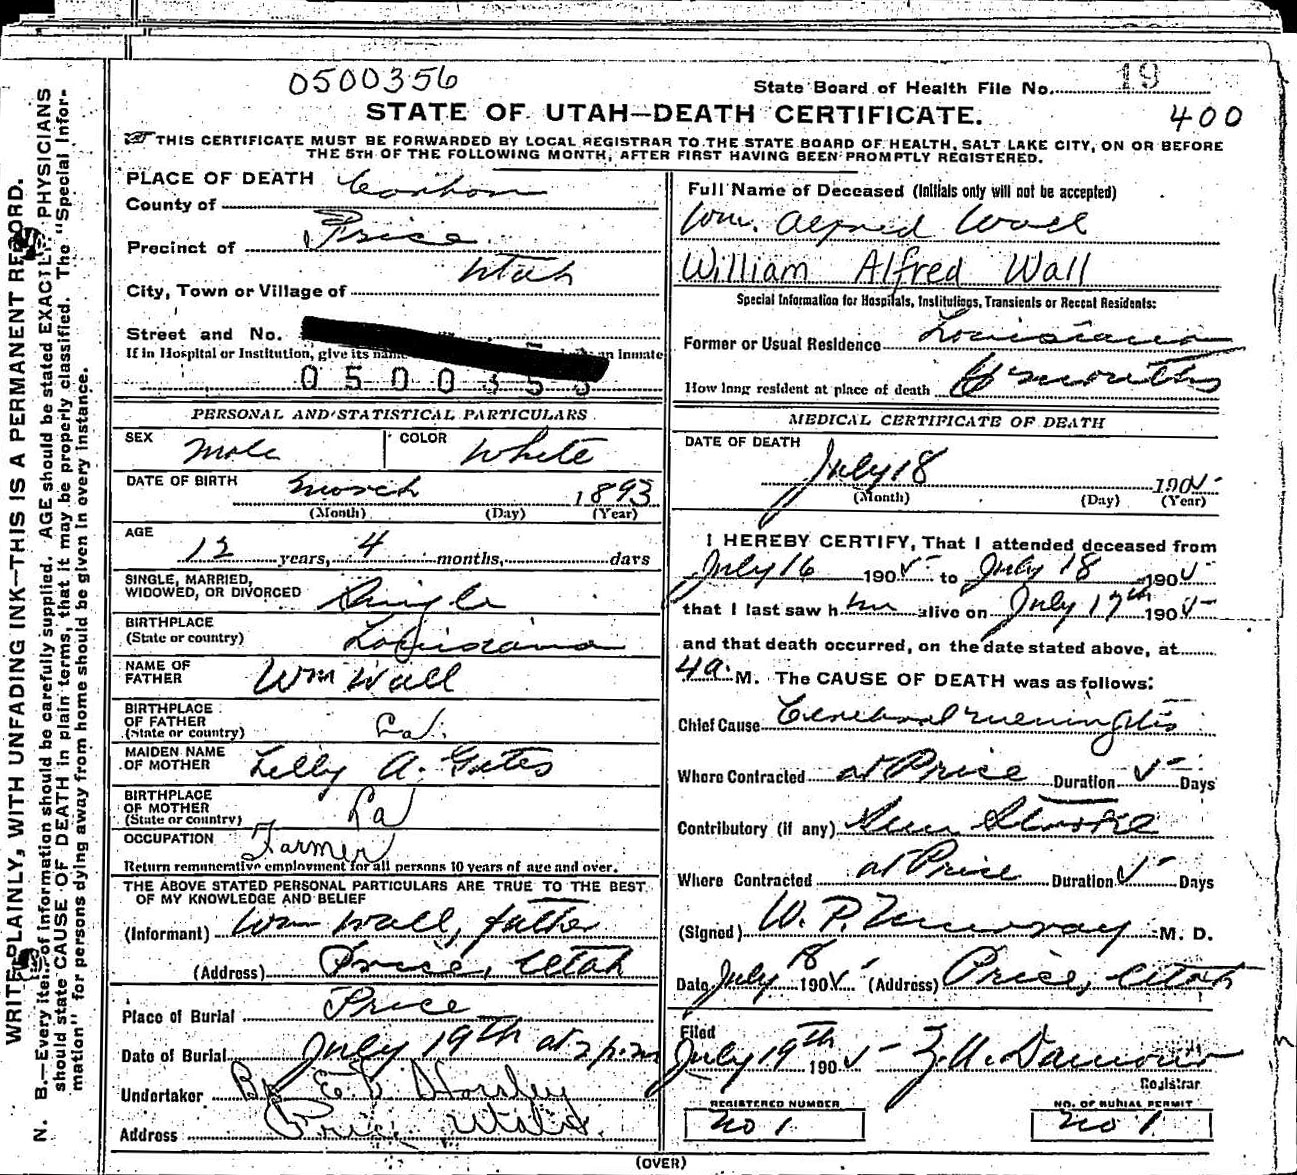 0500356
State Board of Health File No. 19
STATE OF UTAH—DEATH CERTIFICATE.
400
THIS CERTIFICATE MUST BE FORWARDED BY LOCAL REGISTRAR TO THE STATE BOARD OF HEALTH, SALT LAKE CITY, ON OR BEFORE
THE 5TH OF THE FOLLOWING MONTH, AFTER FIRST HAVING BEEN PROMPTLY REGISTERED.
WRITE PLAINLY, WITH UNFADING INK—THIS IS A PERMANENT RECORD.
N. B.—Every item of information should be carefully supplied. AGE should be stated EXACTLY. PHYSICIANS
should state CAUSE OF DEATH in plain terms, that it may be properly classified. The "Special Infor-
mation" for persons dying away from home should be given in every instance.
PLACE OF DEATH
County of Carbon
Precinct of Price
City, Town or Village of Utah
Street and No.
If in Hospital or Institution, give its name an Inmate
0500353
PERSONAL AND STATISTICAL PARTICULARS
SEX Male COLOR White
DATE OF BIRTH March 1893
(Month) (Day) (Year)
AGE 12 years, 4 months, days
SINGLE, MARRIED,
WIDOWED, OR DIVORCED Single
BIRTHPLACE
(State or country) Louisiana
NAME OF
FATHER Wm Wall
BIRTHPLACE
OF FATHER
(State or country) La.
MAIDEN NAME
OF MOTHER Lelly A. Gates
BIRTHPLACE
OF MOTHER
(State or country) La
OCCUPATION Farmer
Return remunerative employment for all persons 10 years of age and over.
THE ABOVE STATED PERSONAL PARTICULARS ARE TRUE TO THE BEST
OF MY KNOWLEDGE AND BELIEF
(Informant) Wm Wall, father
(Address) Price, Utah
Place of Burial Price
Date of Burial July 19th at 2 p.m
Undertaker By E. Horsley
Address Price Utah
Full Name of Deceased (Initials only will not be accepted)
Wm. Alfred Wall
William Alfred Wall
Special Information for Hospitals, Institutions, Transients or Recent Residents:
Former or Usual Residence Louisiana
How long resident at place of death months
MEDICAL CERTIFICATE OF DEATH
DATE OF DEATH
July 18 1905
(Month) (Day) (Year)
I HEREBY CERTIFY, That I attended deceased from
July 16 1905 to July 18 1905
that I last saw him alive on July 17th 1905
and that death occurred, on the date stated above, at
4 a. M. The CAUSE OF DEATH was as follows:
Chief Cause Cerebral meningitis
Where Contracted at Price Duration 5 Days
Contributory (if any) Sun Stroke
Where Contracted at Price Duration 5 Days
(Signed) W. P. Murray M. D.
Date July 18 1905 (Address) Price, Utah
Filed
July 19th 1905
Registrar
REGISTERED NUMBER
No 1
NO. OF BURIAL PERMIT
No 1.
(OVER)